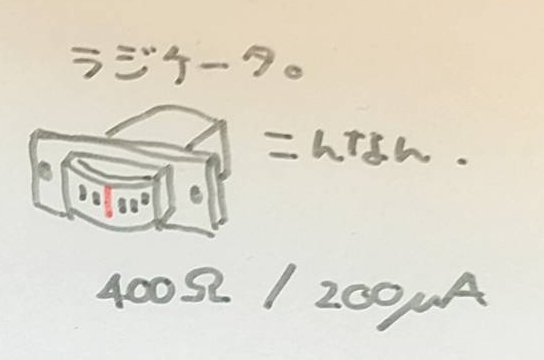 ラジケータ。
こんなん.
400Ω / 200μA